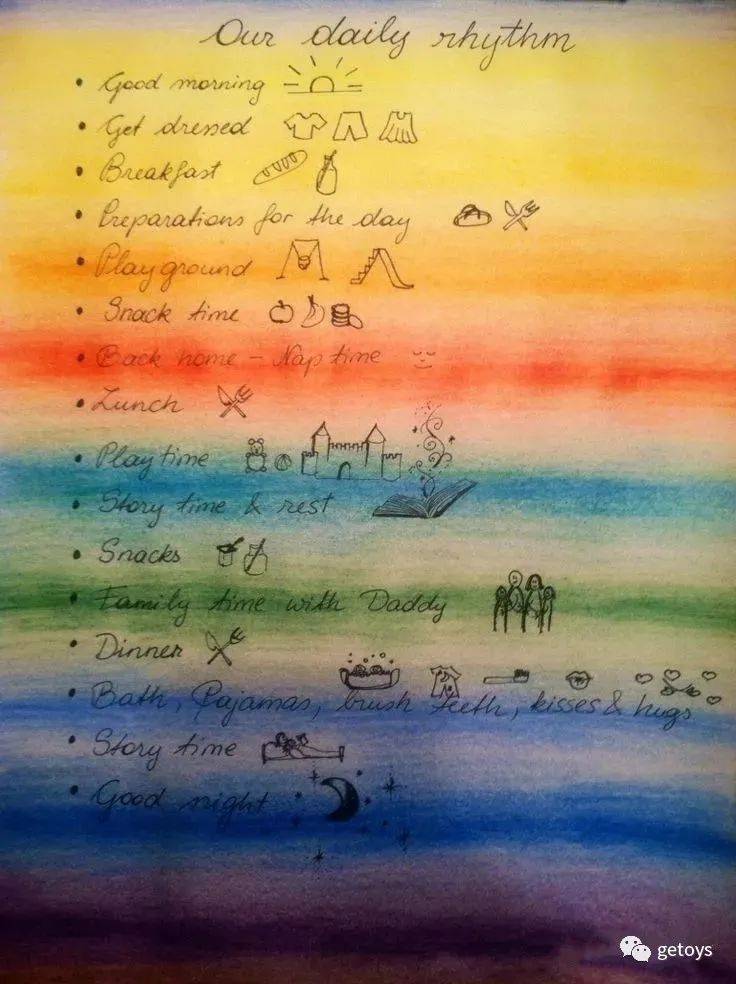 Our daily rhythm
• Good morning
• Get dressed
• Breakfast
• Preparations for the day
• Playground
• Snack time
• Back home - Nap time
• Lunch
• Playtime
• Story time & rest
• Snacks
• Family time with Daddy
• Dinner
• Bath, Pajamas, brush teeth, kisses & hugs
• Story time
• Good night
getoys